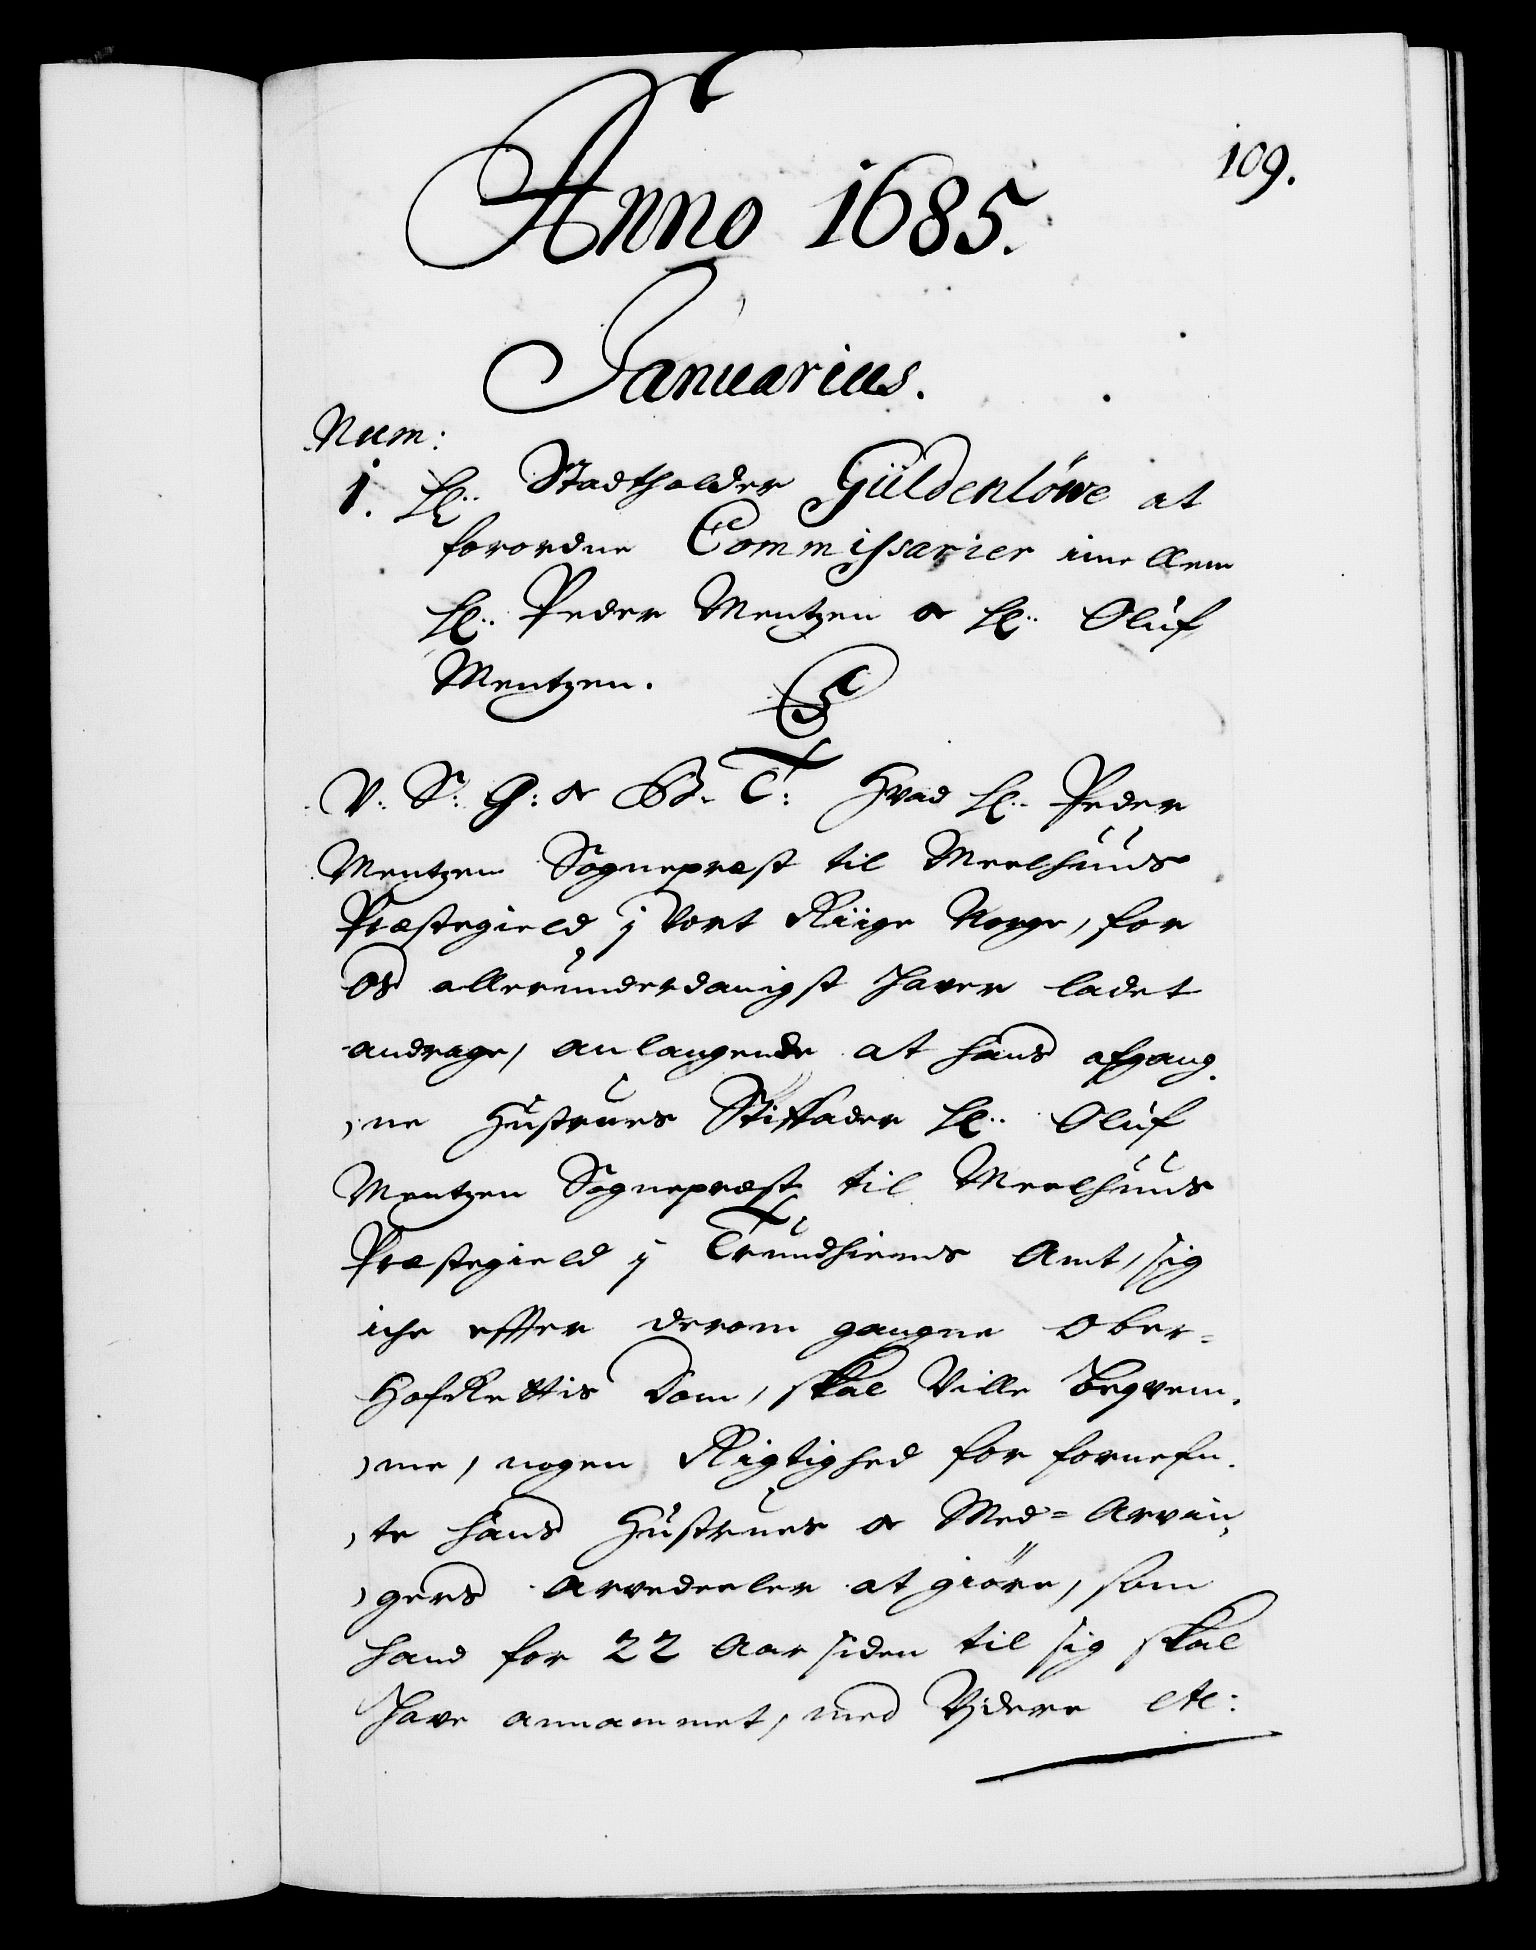 109.
Anno 1685.
Januarius.
Num:
1. Hr: Stadtholder Güldenlöwe at
forordne Commissarier imellem
Hr: Peder Mentzen og Hr: Oluf
Mentzen.
C5
V: S: G: og B. T: Hvad Hr: Peder
Mentzen Sognepræst til Meelhuus
Præstegield j Vort Riige Norge, for
Os allerunderdanigst haver ladet
andrage, anlangende at hans afgang„
„ne Hustrues Stiffader Hr: Oluf
Mentzen Sognepræst til Meelhuus
Præstegield j Trundhiems Amt, sig
iche efter derom gangne Ober-
HofRettis Dom, skal Ville beqvem„
„me, nogen Rigtighed for fornefn„
„te hans Hustrues og Med= Arvin„
„gers Arvedeeler at giöre, som
hand for 22 Aar siden til sig skal
have annammet, med Videre etc: